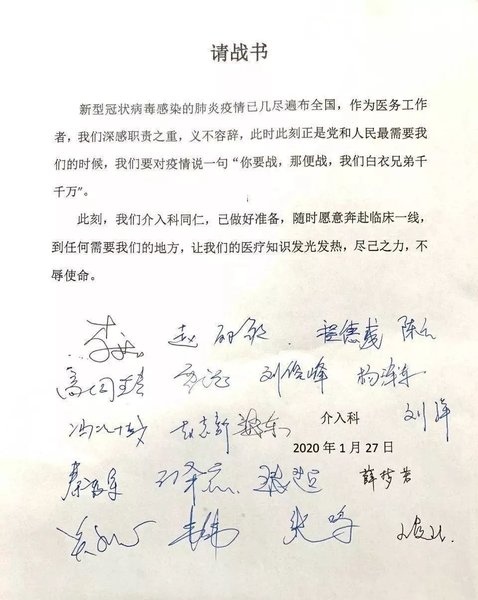 请战书
新型冠状病毒感染的肺炎疫情已几尽遍布全国，作为医务工作
者，我们深感职责之重，义不容辞，此时此刻正是党和人民最需要我
们的时候，我们要对疫情说一句“你要战，那便战，我们白衣兄弟千
千万”。
此刻，我们介入科同仁，已做好准备，随时愿意奔赴临床一线，
到任何需要我们的地方，让我们的医疗知识发光发热，尽己之力，不
辱使命。
程德义 陈
刘俊峰
介入科 刘洋
2020 年 1 月 27 日
薛梦若